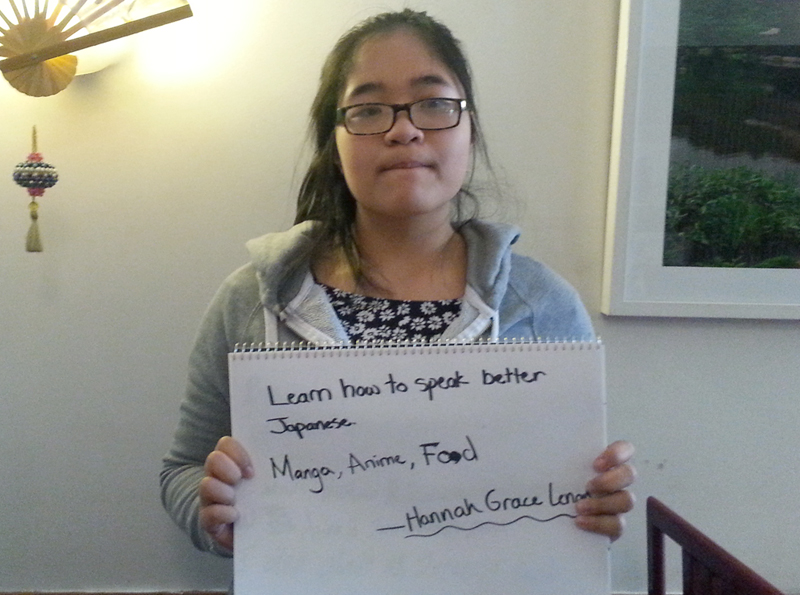 Learn how to speak better
Japanese.
Manga, Anime, Food
—Hannah Grace